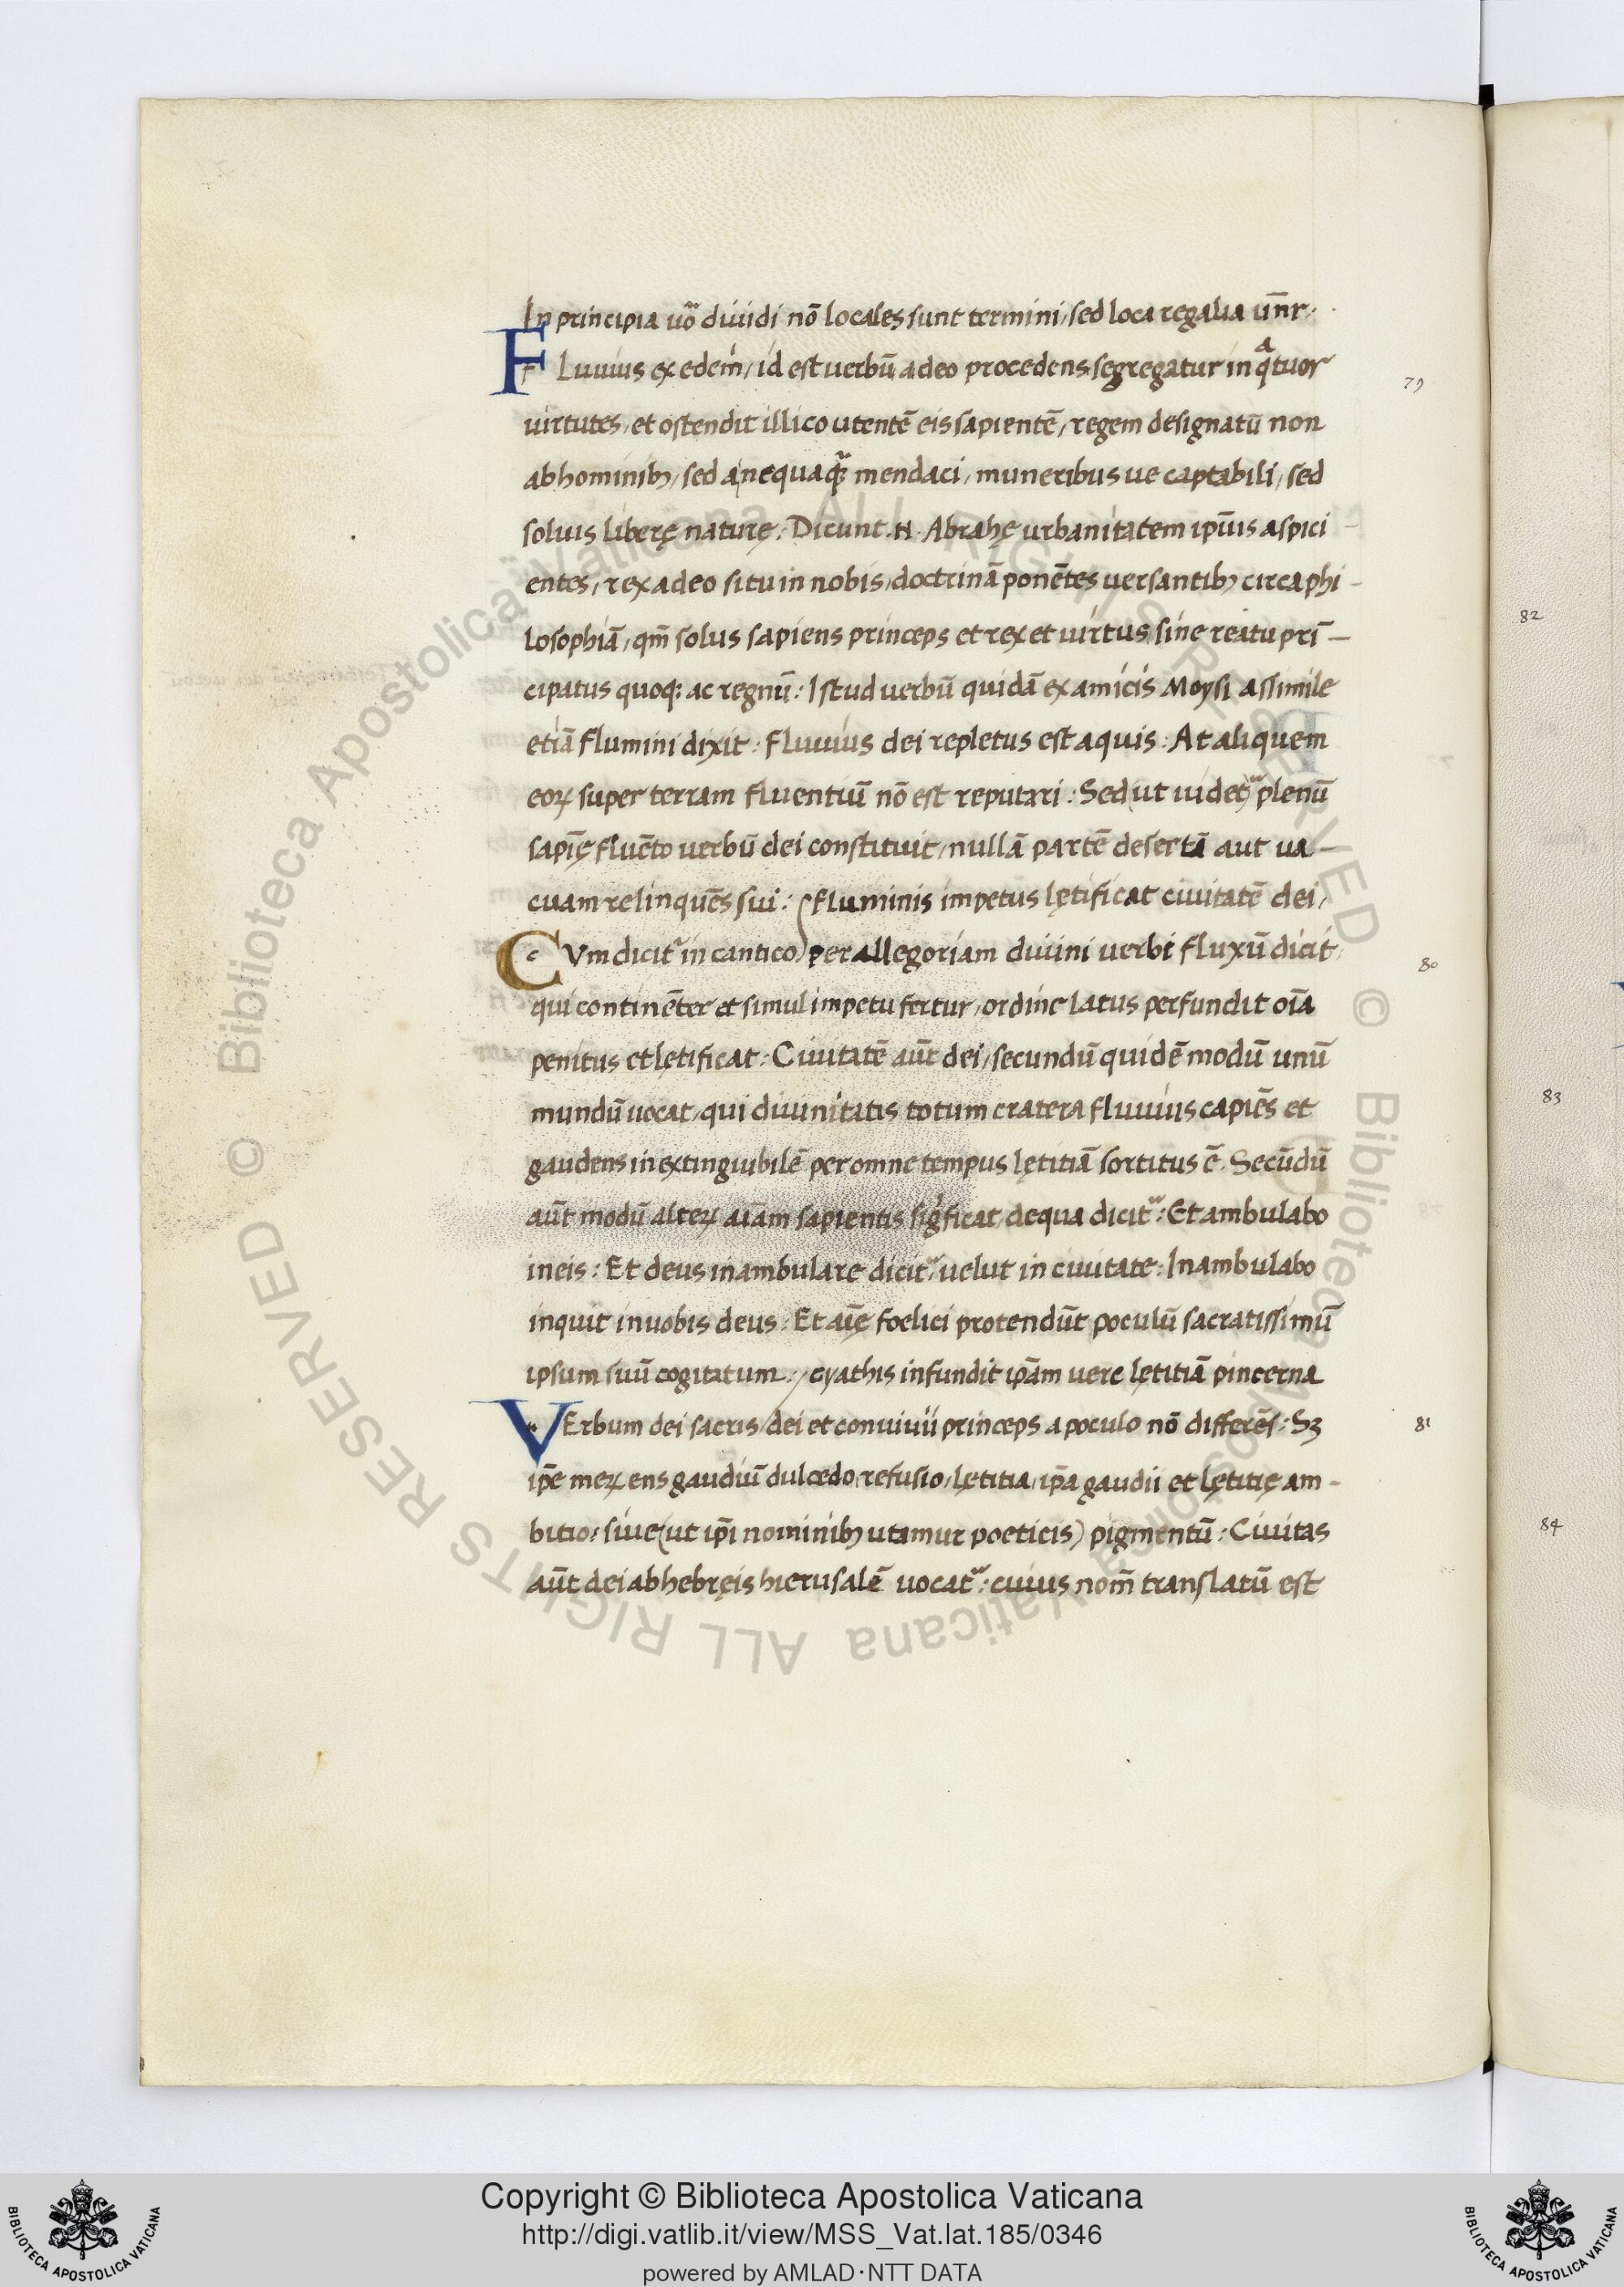 In principia uoᷓ diuidi nō locales sunt termini, sed loca regalia un̄r.
FLuuius ex edem, id est uerbū a deo procedens segregatur in qᵃtuor
79
uirtutes, et ostendit illico utentē eis sapientē, regem designatū non
ab hominibȝ, sed a nequaqᷓ mendaci, muneribus ue captabili, sed
solius liberę naturę: Dicunt .N. Abrahę urbanitatem ip̄ius aspici-
entes, rex a deo situ in nobis, doctrinā ponētes uersantibȝ circa phi-
losophiā, qm̄ solus sapiens princeps et rex et uirtus sine reatu prī-
cipatus quoqȝ ac regnū: Istud uerbū quidā ex amicis Moysi assimile
etiā flumini dixit: Fluuius dei repletus est aquis: At aliquem
eoꝝ super terram fluentiū nō est reputari: Sed ut uidetᷣ plenū
sapīę fluēto uerbū dei constituit, nullā partē desertā aut ua-
cuam relinquēs sui: Fluminis impetus lętificat ciuitatē dei,
CVm dicitᷣ in cantico per allegoriam diuini uerbi fluxū dicit,
80
qui continēter et simul impetu fertur, ordine latus perfundit oīa
penitus et lętificat: Ciuitatē aūt dei, secundū quidē modū unū
mundū uocat, qui diuinitatis totum cratera fluuiis capiēs et
gaudens inextinguibilē per omne tempus lętitiā sortitus ē. Secūdū
aūt modū alteꝝ aīam sapientis sigͥficat, de qua dicitᷣ: Et ambulabo
in eis: Et deus inambulare dicitᷣ, uelut in ciuitate: Inambulabo
inquit in uobis deus: Et aīę foelici protendūt poculū sacratissimū
ipsum suū cogitatum: cyathis infundit ip̄am uere lętitiā pincerna
VErbum dei sacris dei et conuiuii princeps a poculo nō differēs: Sȝ
81
ip̄e meꝝ ens gaudiū dulcedo, refusio, lętitia, ip̄a gaudii et lętitię am-
bitio: siue (ut ip̄i nominibȝ utamur poeticis) pigmentū: Ciuitas
aūt dei ab hebręis hierusalē uocatᷣ: cuius nom̄ translatū est
82
83
84
© Biblioteca Apostolica Vaticana ALL RIGHTS RESERVED © Biblioteca Apostolica Vaticana ALL RIGHTS RESERVED
Copyright © Biblioteca Apostolica Vaticana
http://digi.vatlib.it/view/MSS_Vat.lat.185/0346
powered by AMLAD·NTT DATA
BIBLIOTECA APOSTOLICA VATICANA
BIBLIOTECA APOSTOLICA VATICANA